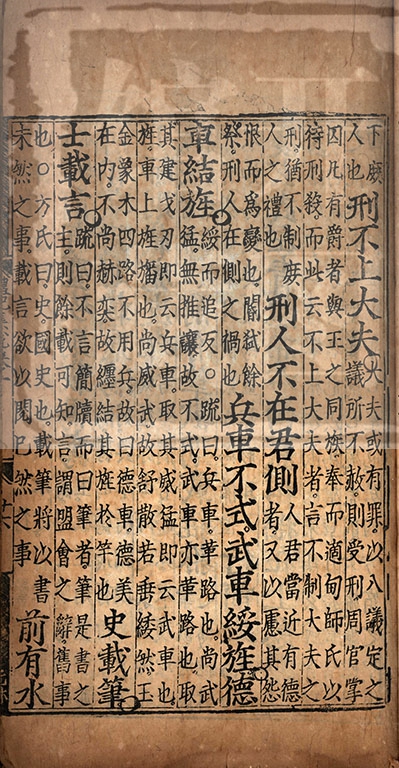 下庶
人也
刑不上大夫
大夫或有罪以八議定之
議所不赦則受刑周官掌
囚凡有爵者與王之同族奉而適甸師氏以
待刑殺而此云不上大夫者言不制大夫之
刑猶不制庶
人之禮也
刑人不在君側
人君當近有德
者又以慮其怨
恨而爲變也閽弒餘
祭刑人在側之禍也
兵車不式武車綏旌德
車結旌
綏而追反○疏曰兵車革路也尚武
猛無推讓故不式武車亦革路也取
其建戈刃即云兵車取其威猛即云武車也
旌車上旌旛也尚威武故舒散若垂緌然玉
金象木四路不用兵故曰德車德美
在内不尚赫奕故纏結其旌於竿也
史載筆
士載言
疏曰不言簡牘而曰筆者筆是書之
主則餘載可知言謂盟會之辭舊事
也○方氏曰史國史也載筆將以書
未然之事載言欲以閱已然之事
前有水